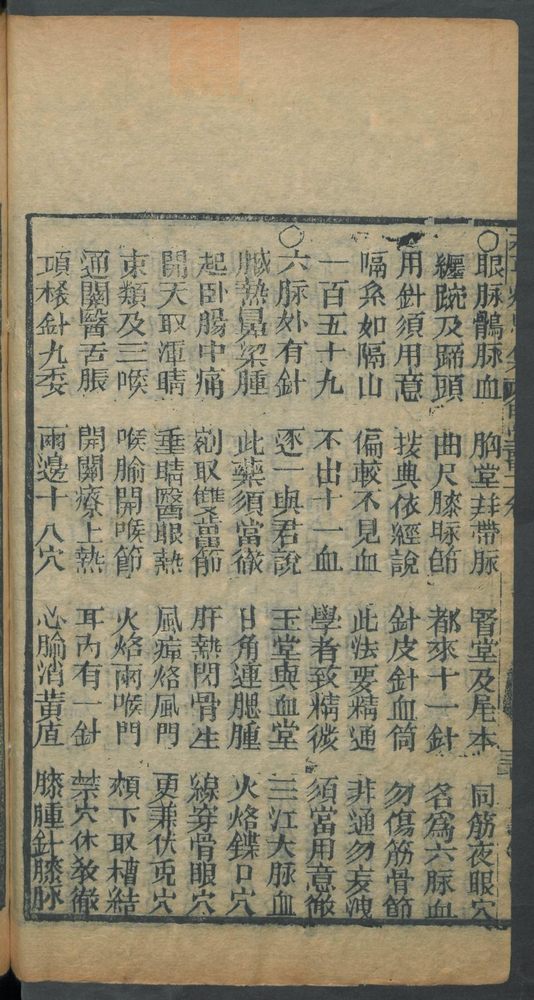 ○眼脉鶻脉血 胸堂并帶脉 腎堂及尾本 同筋夜眼穴
纏踠及蹄頭 曲尺膝脉節 都來十一針 名爲六脉血
用針須用意 按典依經說 針皮針血筒 勿傷筋骨節
嗝系如隔山 偏較不見血 此法要精通 非通勿妄洩
一百五十九 不出十一血 學者致精微 須當用意徹
○六脉外有針 逐一與君說 玉堂與血堂 三江大脉血
臓熱鼻梁腫 此藥須當徹 日角連腮腫 火烙鏁口穴
起卧腸中痛 剜取雙𧿹節 肝熱閃骨生 線穿骨眼穴
開天取渾睛 垂睛醫眼熱 風痳烙風門 更兼伏兎穴
束顙及三喉 喉腧開喉節 火烙兩喉門 頰下取槽結
通關醫舌脹 開關療上熱 耳内有一針 禁穴休教徹
項檨針九委 兩邊十八穴 心腧消黃直 膝腫針膝脉